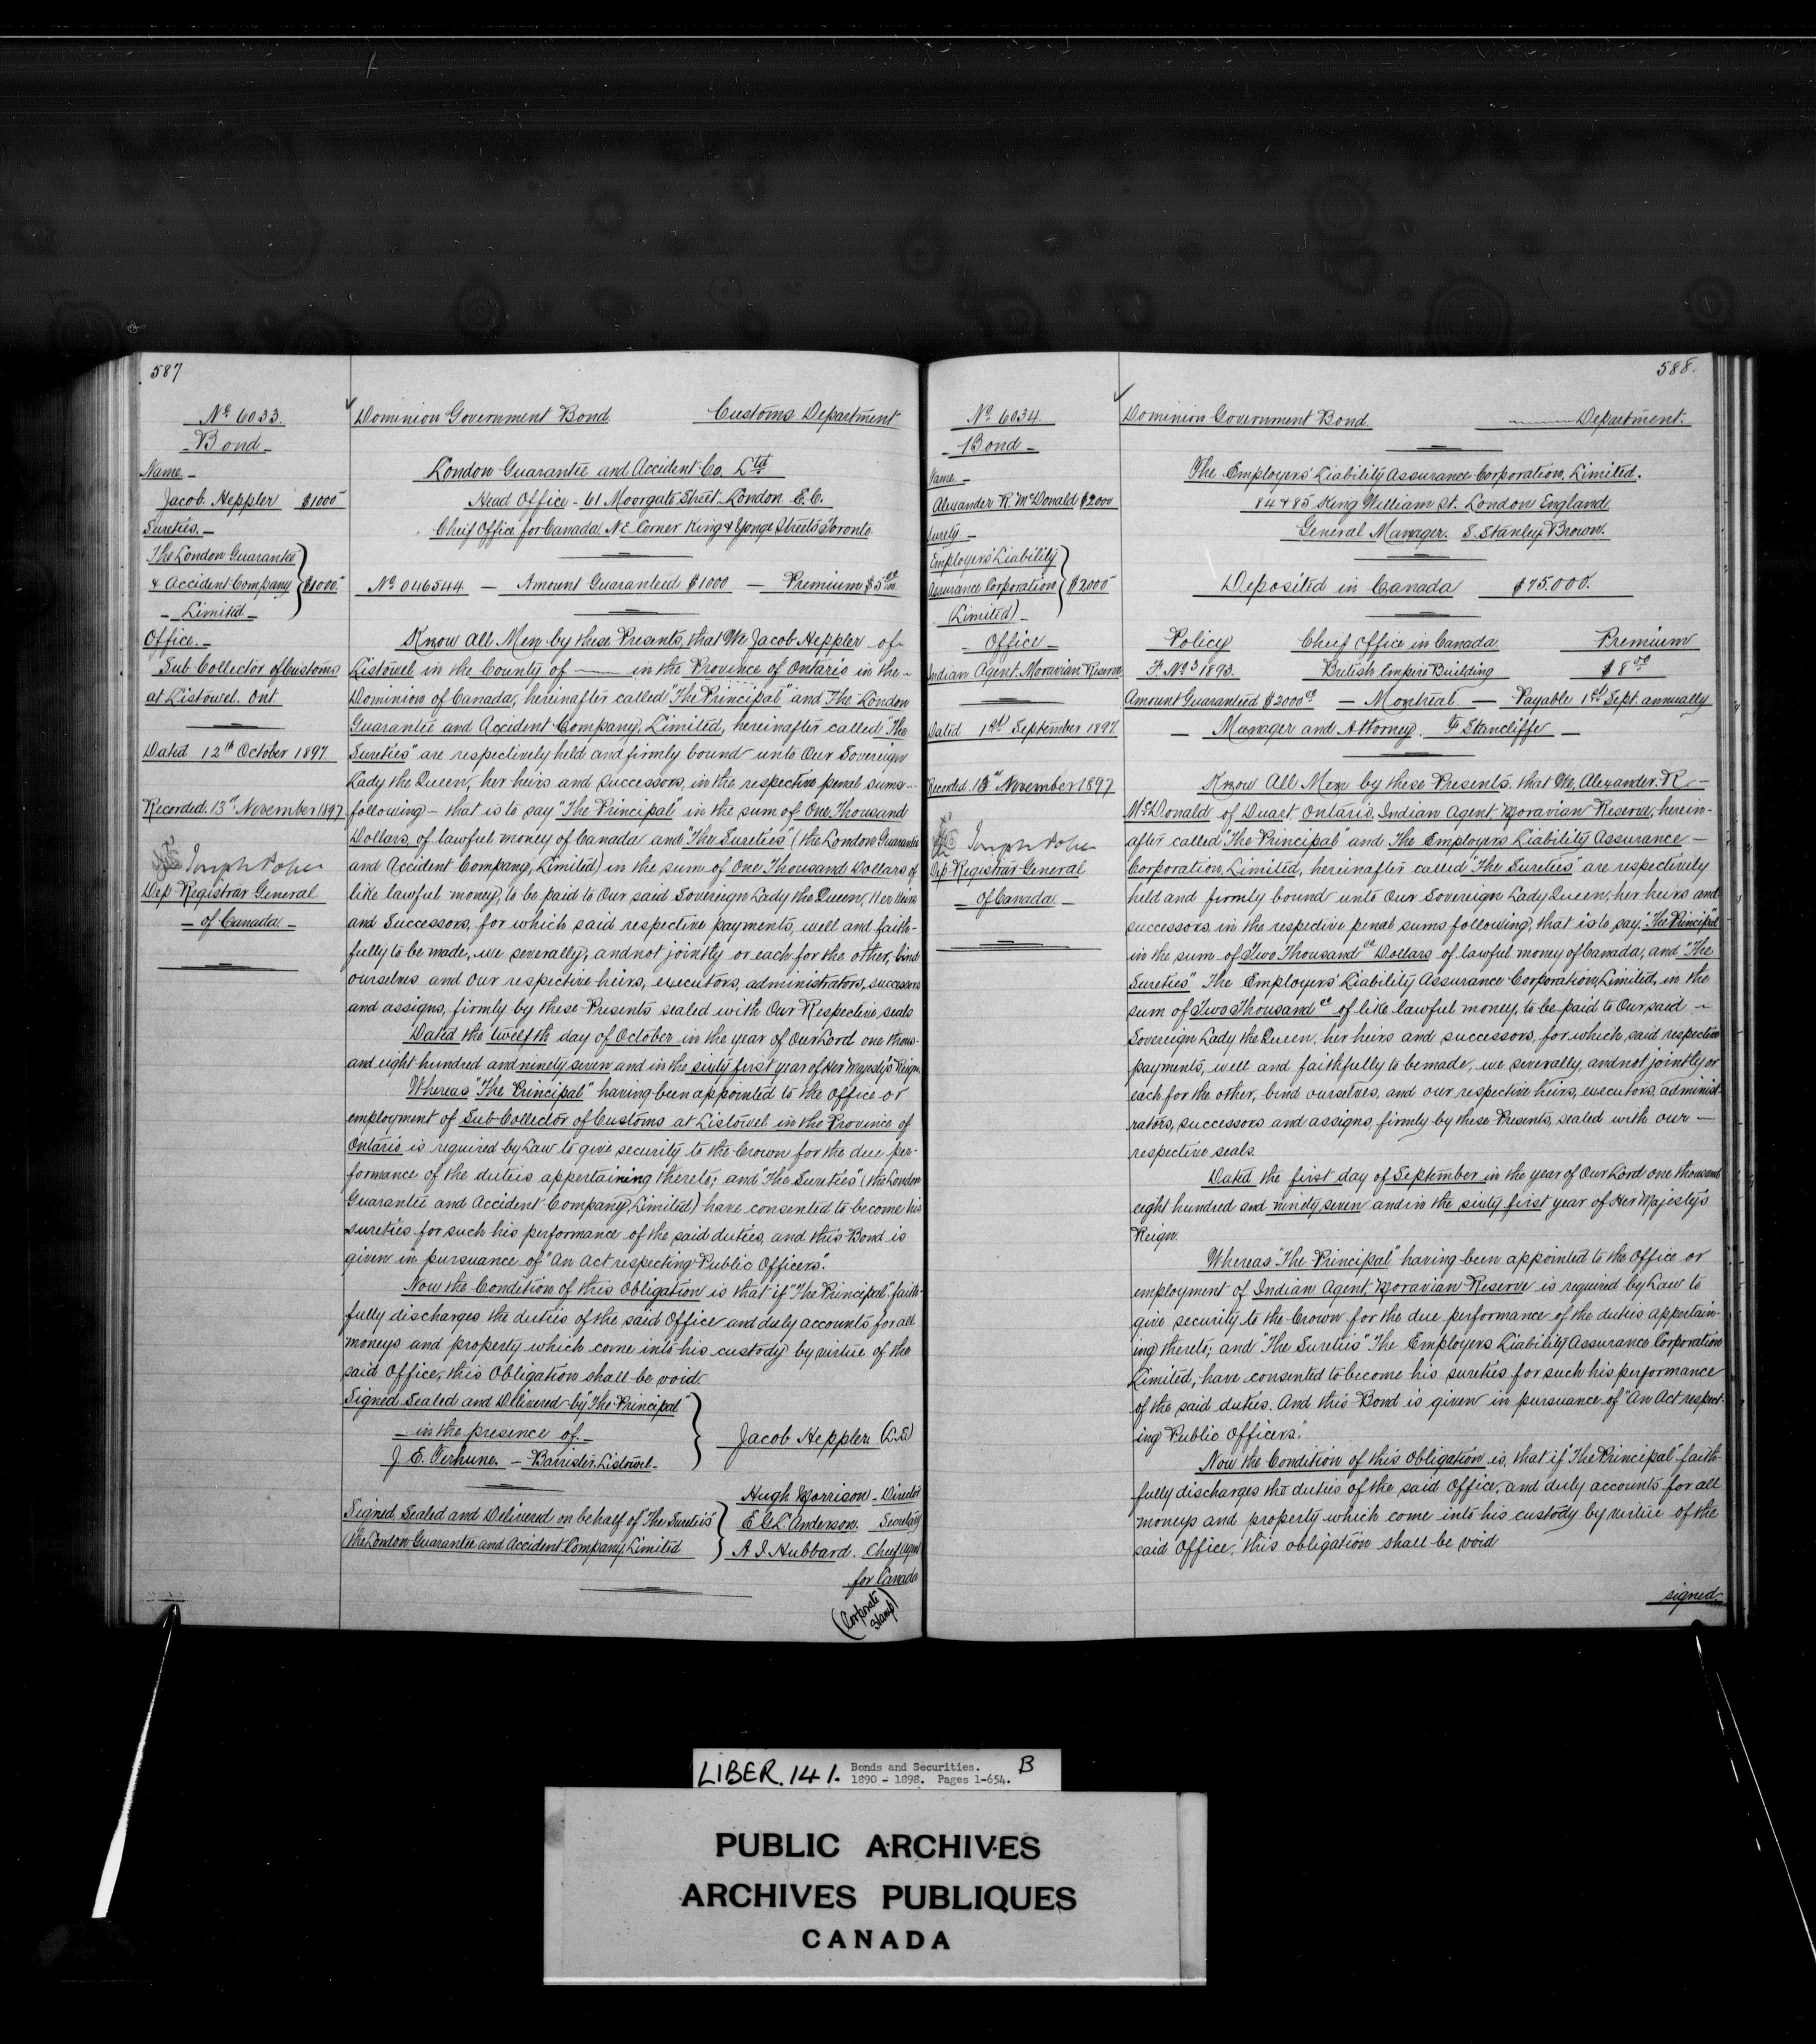 587
Nº 6033.
Bond
Name.
Jacob Heppler $1000
Sureties.
The London Guarantee
& Accident Company $1000
Limited
Office.
Sub Collector of Customs
at Listowel. Ont.
Dated 12th October 1897.
Recorded. 13th November 1897
Joseph Pope
Dep Registrar General
of Canada
Dominion Government Bond. Customs Department
London Guarantee and Accident Co. Ltd
Head Office - 61 Moorgate Street London E.C.
Cheif Office for Canada. N.E. Corner King & Yonge Streets Toronto.
Nº 046544 — Amount Guaranteed $1000 — Premium $5.00
Know All Men by these Presents, that We Jacob Heppler of
Listowel in the County of —— in the Province of Ontario in the
Dominion of Canada, hereinafter called "The Principal" and The London
Guarantee and Accident Company, Limited, hereinafter called "The
Sureties" are respectively held and firmly bound unto Our Sovereign
Lady the Queen, her heirs and successors, in the respective penal sums
following - that is to say "The Principal" in the sum of One Thousand
Dollars, of lawful money of Canada and "The Sureties" (the London Guarantee
and Accident Company, Limited) in the sum of One Thousand Dollars of
like lawful money, to be paid to Our said Sovereign Lady the Queen, Her Heirs
and Successors, for which said respective payments, well and faith-
fully to be made, we severally, and not jointly or each for the other, bind
ourselves and our respective heirs, executors, administrators, successors
and assigns, firmly by these Presents sealed with Our Respective seals
Dated the twelfth day of October in the year of Our Lord one thous-
and eight hundred and ninety seven and in the sixty first year of Her Majesty's Reign.
Whereas "The Principal" having been appointed to the Office or
employment of Sub-Collector of Customs at Listowel in the Province of
Ontario is required by Law to give security to the Crown for the due per-
formance of the duties appertaining thereto; and "The Sureties" (the London
Guarantee and Accident Company, Limited) have consented to become his
sureties for such his performance of the said duties, and this Bond is
given in pursuance of "An Act respecting Public Officers."
Now the Condition of this Obligation is that if "The Principal" faith-
fully discharges the duties of the said Office and duly accounts for all
moneys and property which come into his custody by virtue of the
said Office, this Obligation shall be void.
Signed Sealed and Delivered by "The Principal"
in the presence of Jacob Heppler (L.S.)
J. E. Terhune. - Barrister. Listowel.
Hugh Morrison - Director
Signed, Sealed and Delivered on behalf of "The Sureties" E G L. Anderson. Secretary
(the London Guarantee and Accident Company Limited A. I. Hubbard. Cheif Agent
for Canada
(Corporate Stamp)
588.
Nº 6034.
Bond
Name
Alexander R. McDonald $2000
Surety
Employers' Liability
Assurance Corporation $2000
(Limited)
Office
Indian Agent. Moravian Reserve
Dated 1st September 1897.
Recorded. 13th November 1897
Joseph Pope
Dep. Registrar General
of Canada
Dominion Government Bond. Department.
The Employers' Liability Assurance Corporation, Limited.
84 & 85 King William St. London England.
General Manager. S. Stanley Brown.
Deposited in Canada $75.000.
Policy Cheif Office in Canada Premium
F. Nº 3 1893. British Empire Building $8.00
Amount Guaranteed $2000.00 — Montreal — Payable 1st Sept. annually
Manager and Attorney. F Stancliffe
Know All Men by these Presents, that We, Alexander. R
McDonald of Duart. Ontario, Indian Agent, Moravian Reserve, herein-
after called "The Principal" and The Employers Liability Assurance
Corporation, Limited, hereinafter called "The Sureties" are respectively
held and firmly bound unto Our Sovereign Lady Queen, her heirs and
successors, in the respective penal sums following, that is to say: "The Principal
in the sum of Two Thousand 00 Dollars of lawful money of Canada, and "The
Sureties" The Employers' Liability Assurance Corporation, Limited, in the
sum of Two Thousand 00 of like lawful money, to be paid to Our said
Sovereign Lady the Queen, her heirs and successors, for which said respective
payments, well and faithfully to be made, we severally, and not jointly or
each for the other, bind ourselves, and our respective heirs, executors, administ-
rators, successors and assigns, firmly by these Presents, sealed with our
respective seals.
Dated the first day of September in the year of Our Lord one thousand
eight hundred and ninety seven and in the sixty first year of Her Majesty's
Reign.
Whereas "The Principal" having been appointed to the Office or
employment of Indian Agent, Moravian Reserve is required by Law to
give security to the Crown for the due performance of the duties appertain-
ing thereto; and "The Sureties" The Employers Liability Assurance Corporation
Limited, have consented to become his sureties for such his performance
of the said duties. And this Bond is given in pursuance of "An Act respect-
ing Public Officers."
Now the Condition of this Obligation is, that if "The Principal" faith-
fully discharges the duties of the said Office, and duly accounts for all
moneys and property which come into his custody by virtue of the
said Office, this obligation shall be void
signed
LIBER. 141. Bonds and Securities. B
1890 - 1898. Pages 1-654.
PUBLIC ARCHIVES
ARCHIVES PUBLIQUES
CANADA